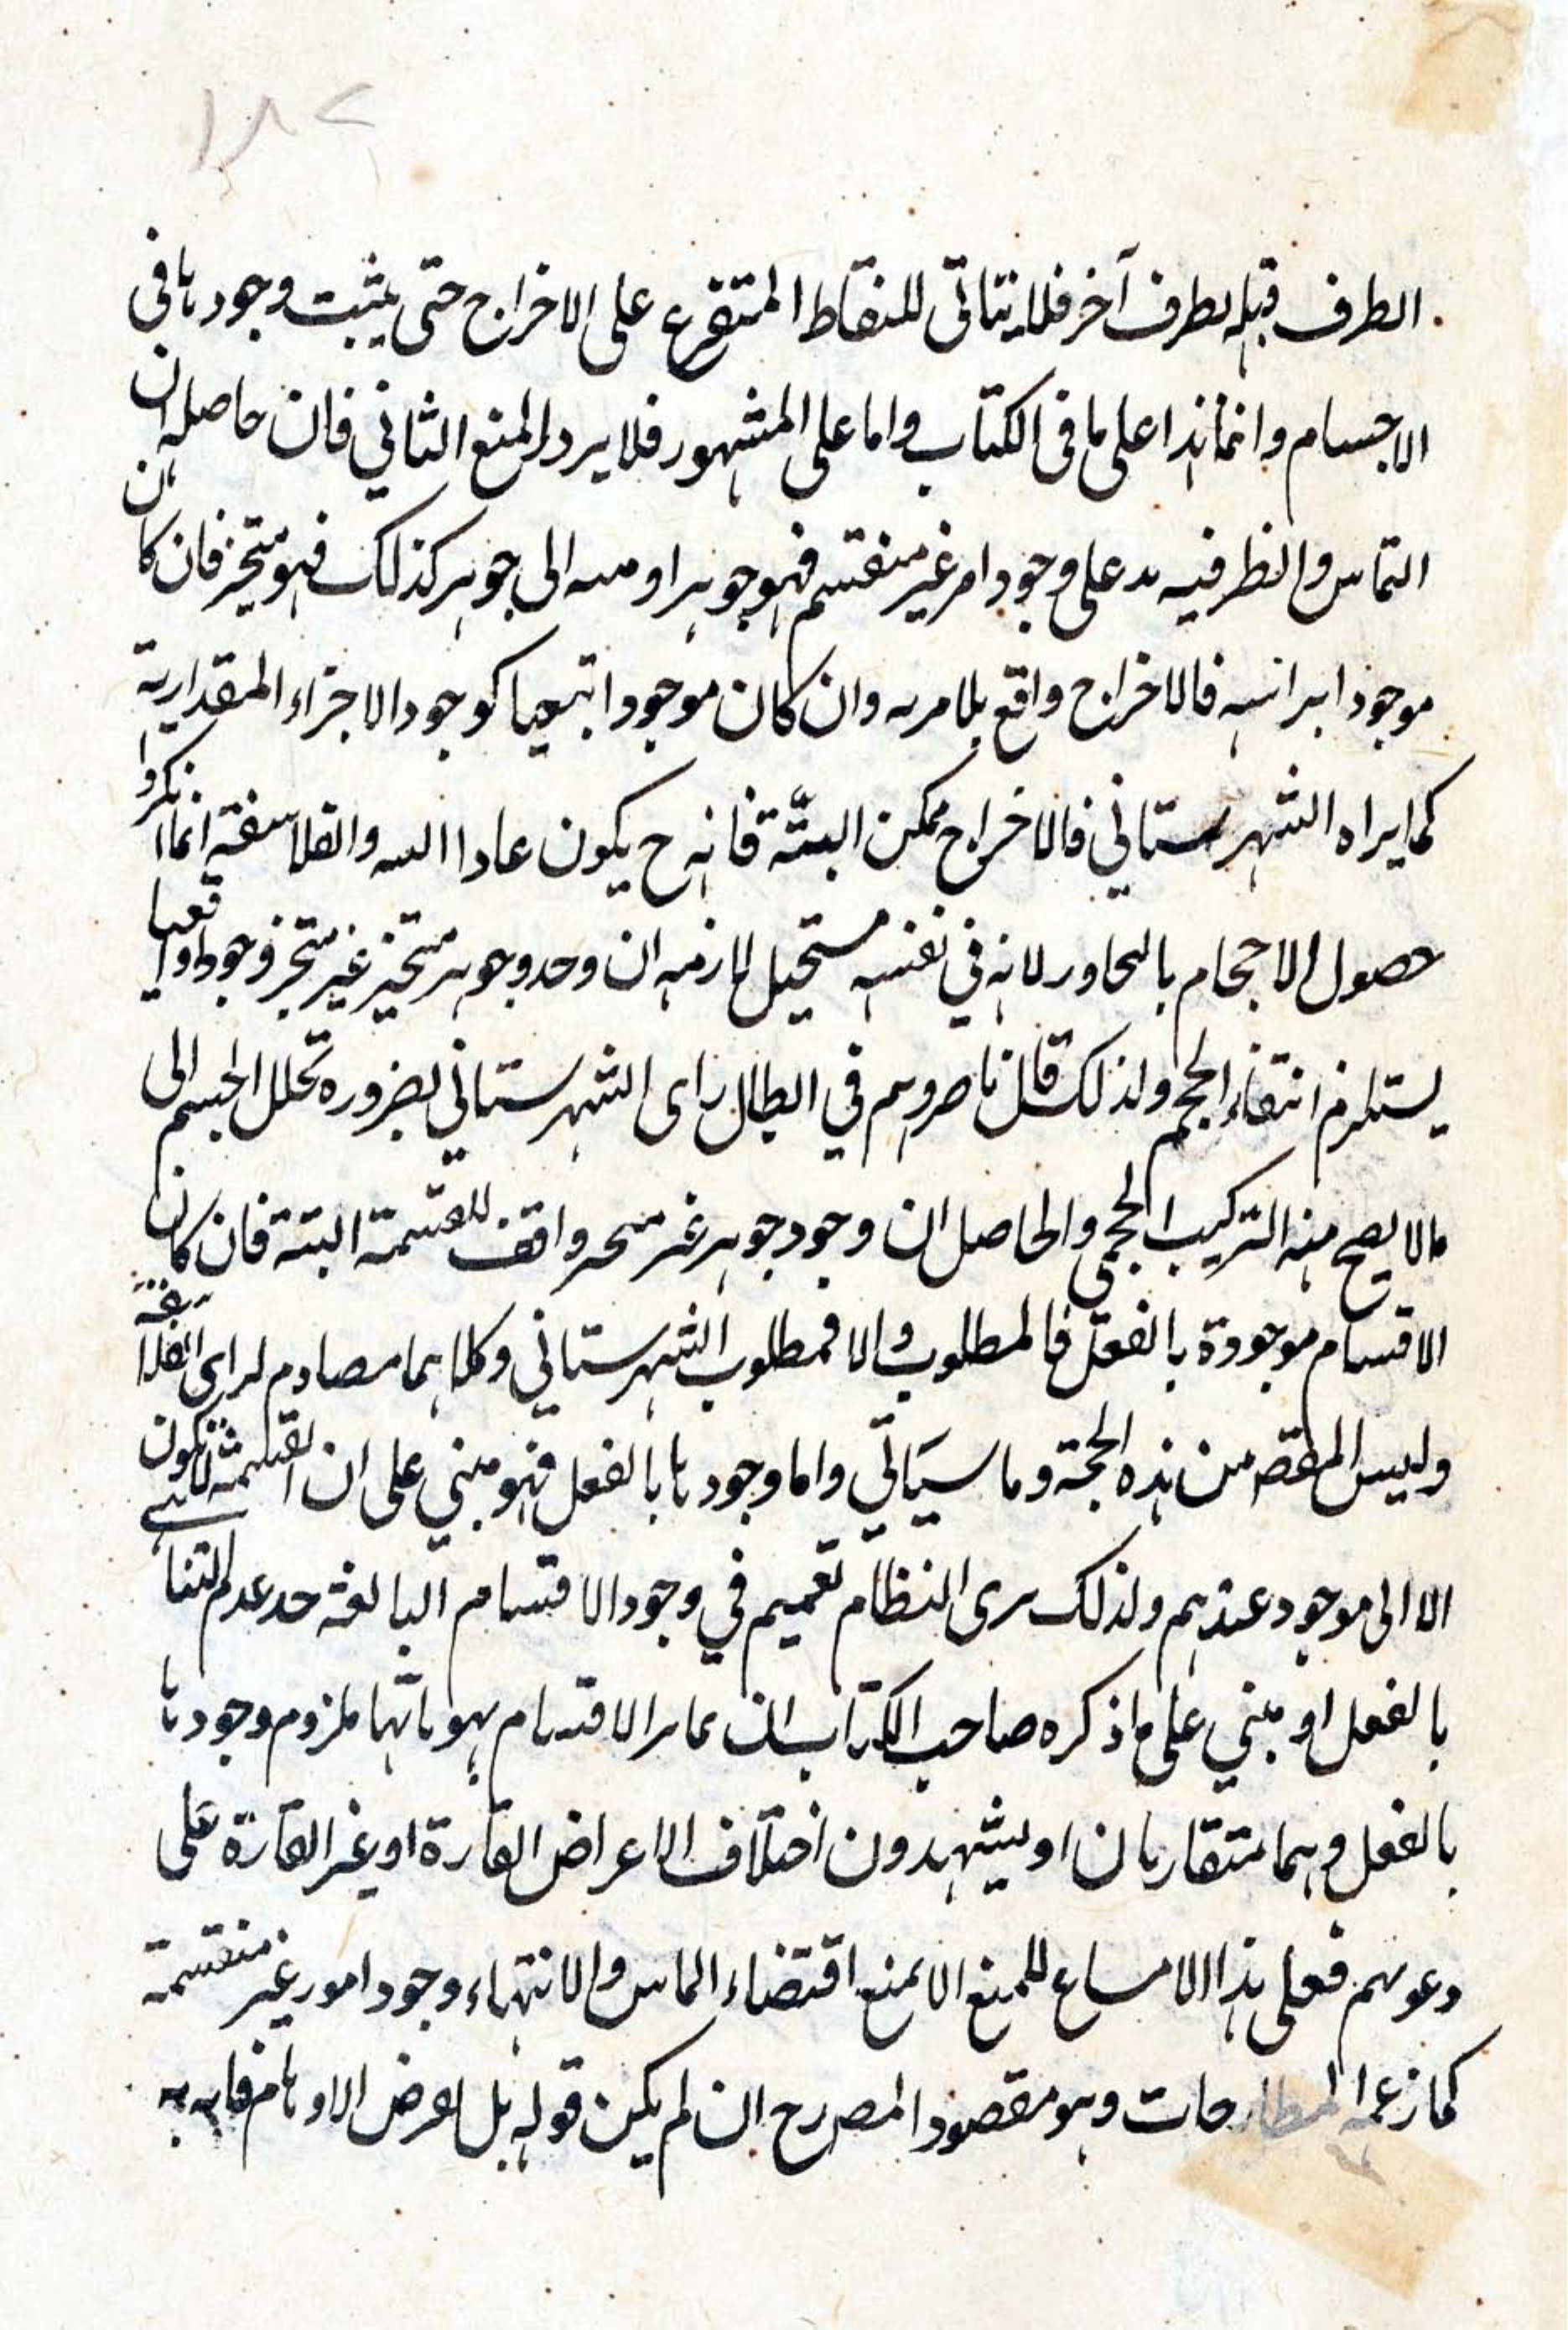 ١٨٢
الطرف قبله لطرف آخر فلا يتاتى للنقاط المتفرع على الاخراج حتى يثبت وجودها في
الاجسام وانما هذا على ما فى الكتاب واما على المشهور فلا يرد المنع الثاني فان حاصله ان
التماس والظرفيه على وجود امر غير منقسم فهو جوهر او الى جوهر كذلك فهو متحيز فان كان
موجودا براسه فالاخراج واقع بلا مريه وان كان موجودا تبعيا كوجود الاجزاء المقدارية
كما يراه الشهرستاني فالاخراج ممكن البتّة فانه ح يكون والفلاسفة انما انكروا
حصول الاحجام لانه في نفسه مستحيل ان وجود جوهر متحيز غير متجز وجودا واقعيا
يستلزم انتفاء الحجم ولذلك قال ناصروهم في ابطال راى الشهرستاني بضرورة تحلل الجسم الى
مالا يصح منه التركيب الحجمى والحاصل ان وجود جوهر غير للقسمة البتة فان كان
الاقسام موجودة بالفعل فالمطلوب والا فمطلوب الشهرستاني وكلاهما مصادم لراى الفلاسفة
وليس المقصد من هذه الحجة وما سياتي واما وجودها بالفعل فهو مبني على ان القسمة لا تكون
الا الى موجود عندهم ولذلك يرى النظام تعميم في وجود الاقسام البالغة حد عدم التناهي
بالفعل او مبني على ما ذكره صاحب الكتاب ان تمايز الاقسام بهوياتها ملزوم وجودها
بالفعل وهما متقاربان او يشهدون اختلاف الاعراض القارة او غير القارة على
دعويهم فعلى هذا لا مساغ للمنع الا بمنع اقتضاء التماس والانتهاء وجود امور غير منقسمة
كما زعمه المطارحات وهو مقصود المصرح ان لم يكن قوله بل لعرض الاوهام فانه به